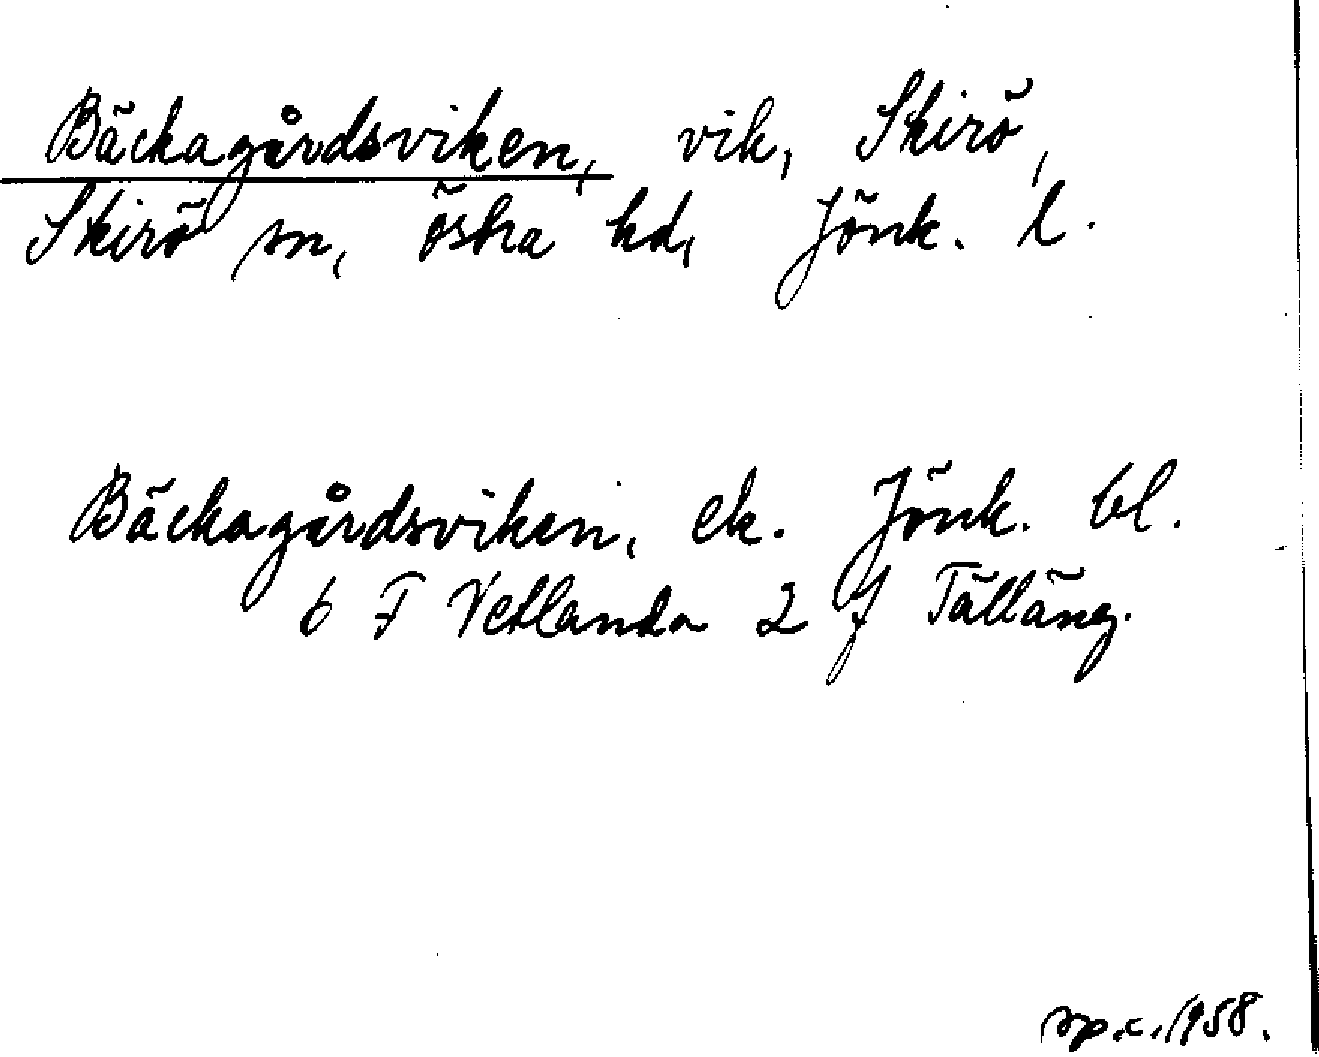 Bäckagårdsviken, vik, Skirö,
Skirö sn, östra hd, Jönk. l.
Bäckagårdsviken, ek. Jönk. bl.
6 F Vetlanda 2 f Tälläng.
1958.